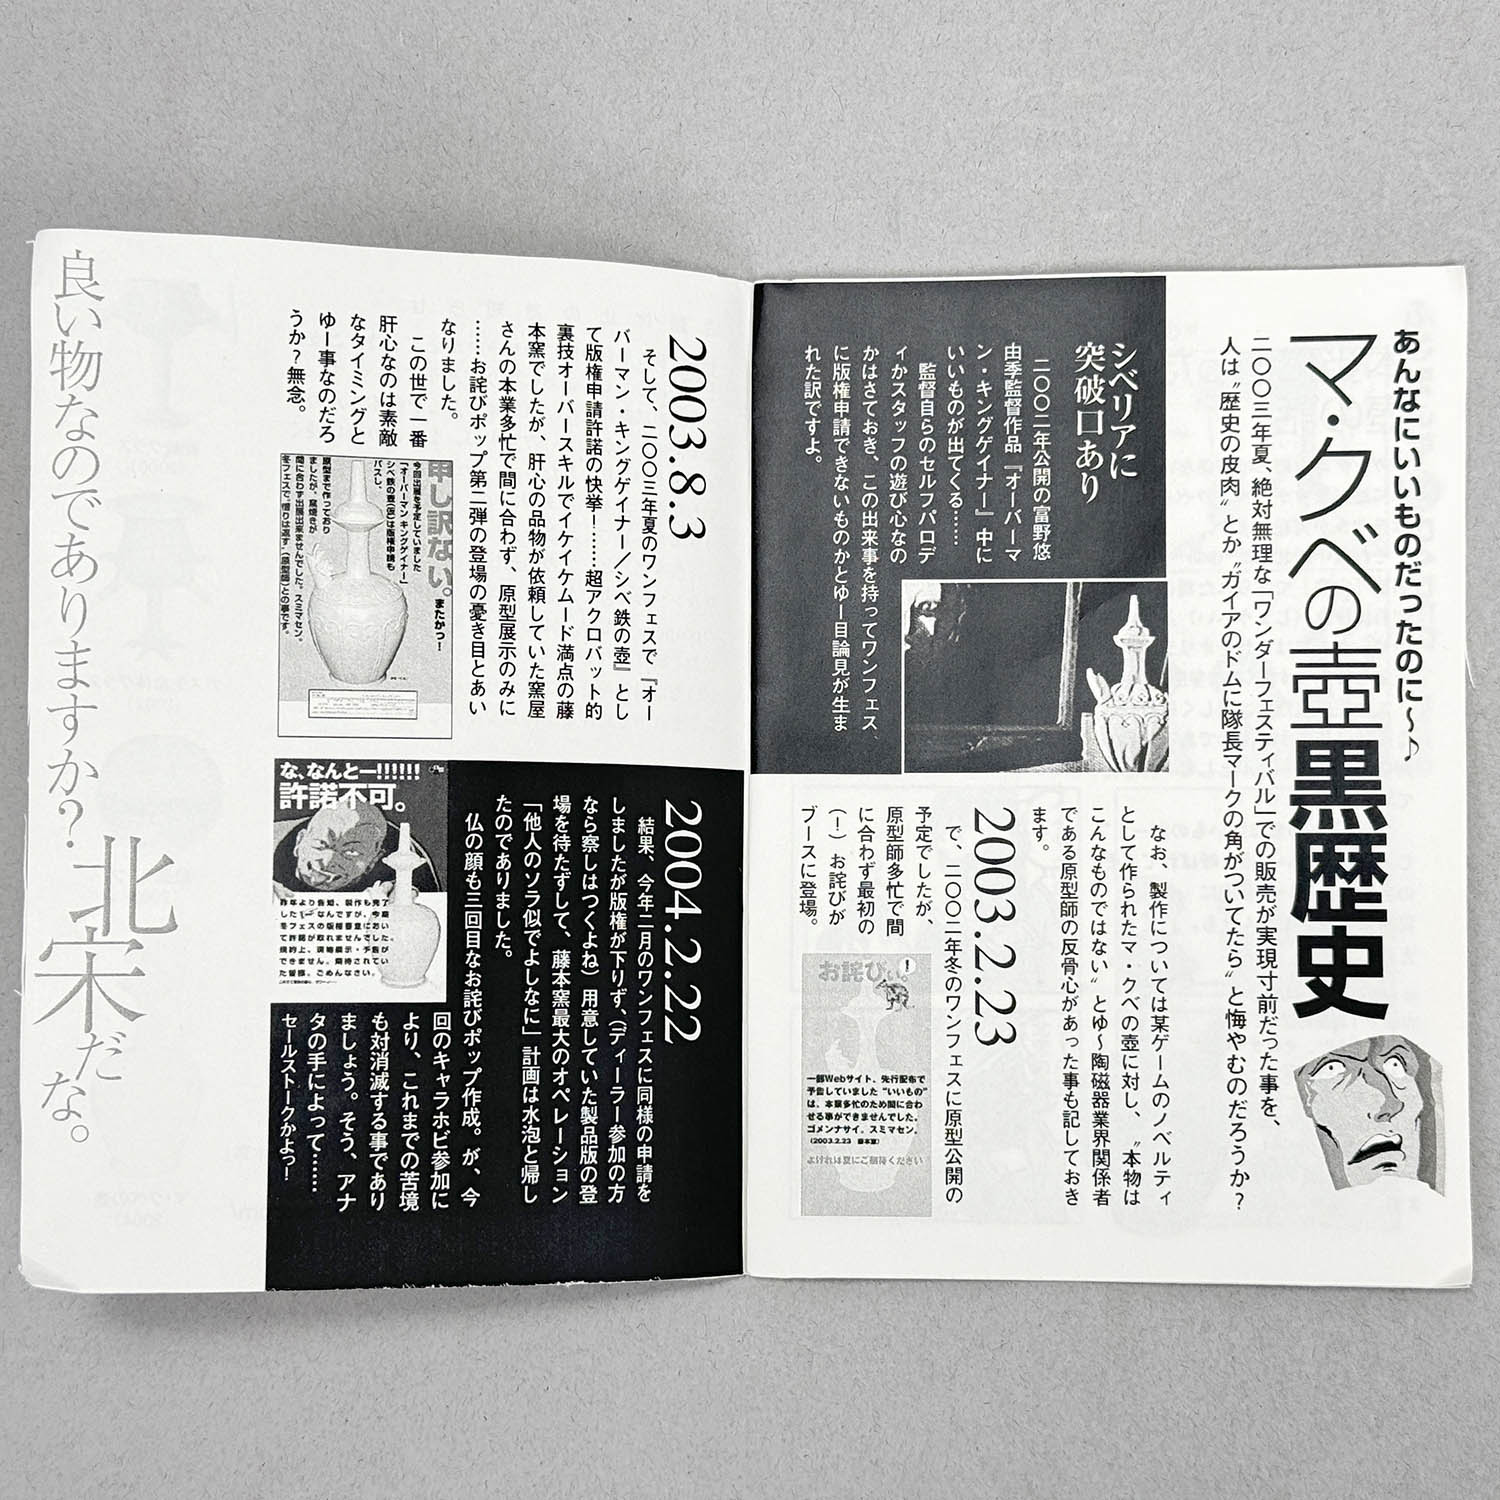 あんなにいいものだったのに〜♪
マ・クベの壺黒歴史
二〇〇三年夏、絶対無理な「ワンダーフェスティバル」での販売が実現寸前だった事を、
人は〝歴史の皮肉〟とか〝ガイアのドムに隊長マークの角がついてたら〟と悔やむのだろうか？
シベリアに
突破口あり
二〇〇二年公開の富野悠
由季監督作品『オーバーマ
ン・キングゲイナー』中に
いいものが出てくる……
監督自らのセルフパロデ
ィかスタッフの遊び心なの
かはさておき、この出来事を持ってワンフェス
に版権申請できないものかとゆー目論見が生ま
れた訳ですよ。
なお、製作については某ゲームのノベルティ
として作られたマ・クベの壺に対し、〝本物は
こんなものではない〟とゆ〜陶磁器業界関係者
である原型師の反骨心があった事も記しておき
ます。
2003.2.23
で、二〇〇二年冬のワンフェスに原型公開の
予定でしたが、
原型師多忙で間
に合わず最初の
（！）お詫びが
ブースに登場。
お詫びぃ。！
一部Webサイト、先行配布で
予告していました“いいもの”
は、本業多忙のため間に合わ
せる事ができませんでした。
ゴメンナサイ。スミマセン。
（2003.2.23　藤本窯）
よければ夏にご期待ください
2003.8.3
そして、二〇〇三年夏のワンフェスで『オー
バーマン・キングゲイナー／シベ鉄の壺』とし
て版権申請許諾の快挙！……超アクロバット的
裏技オーバースキルでイケイケムード満点の藤
本窯でしたが、肝心の品物が依頼していた窯屋
さんの本業多忙で間に合わず、原型展示のみに
……お詫びポップ第二弾の登場の憂き目とあい
なりました。
この世で一番
肝心なのは素敵
なタイミングと
ゆー事なのだろ
うか？無念。
申し訳ない。またかっ！
今回出展を予定していました
「オーバーマン キングゲイナー」
シベ鉄の壺（仮）は版権申請も
パスし、
原型まで作っており
ましたが、窯焼きが
間に合わず出展出来ませんでした。スミマセン。
冬フェスで、借りは返す。（原型師）との事です。
2004.2.22
結果、今年二月のワンフェスに同様の申請を
しましたが版権が下りず、（ディーラー参加の方
なら察しはつくよね）用意していた製品版の登
場を待たずして、藤本窯最大のオペレーション
「他人のソラ似でよしなに」計画は水泡と帰し
たのでありました。
仏の顔も三回目なお詫びポップ作成。が、今
回のキャラホビ参加に
より、これまでの苦境
も対消滅する事であり
ましょう。そう、アナ
タの手によって……
セールストークかよっ！
な、なんとー!!!!!!
許諾不可。
昨年より告知、製作も完了
した
なんですが、今期
冬フェスの版権審査におい
て許諾が取れませんでした。
規約上、現物展示・予告が
できません。期待されてい
た皆様。ごめんなさい。
良い物なのでありますか？
北宋だな。